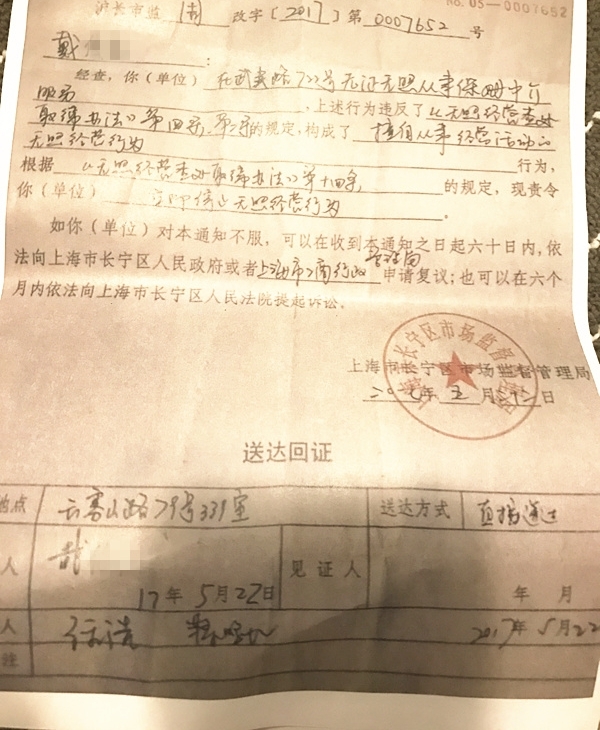 沪长市监 责 改字〔2017〕第 0007652 号
No.05-0007652
戴 :
经查，你（单位） 在武夷路722号无证无照从事保姆中介
服务 ，上述行为违反了《无照经营查处
取缔办法》第四条 的规定，构成了 擅自从事经营活动的
无照经营行为 行为，
根据 《无照经营查处取缔办法》第十四条 的规定，现责令
你（单位） 立即停止无照经营行为 。
如你（单位）对本通知不服，可以在收到本通知之日起六十日内，依
法向上海市长宁区人民政府或者上海市工商行政管理局申请复议；也可以在六个
月内依法向上海市长宁区人民法院提起诉讼。
上海市长宁区市场监督管理局
年五月 二日
送达回证
地点 云雾山路79号331室 送达方式 直接送达
人 戴 见证人
17年5月22日 年 月
人 2017年5月22
注